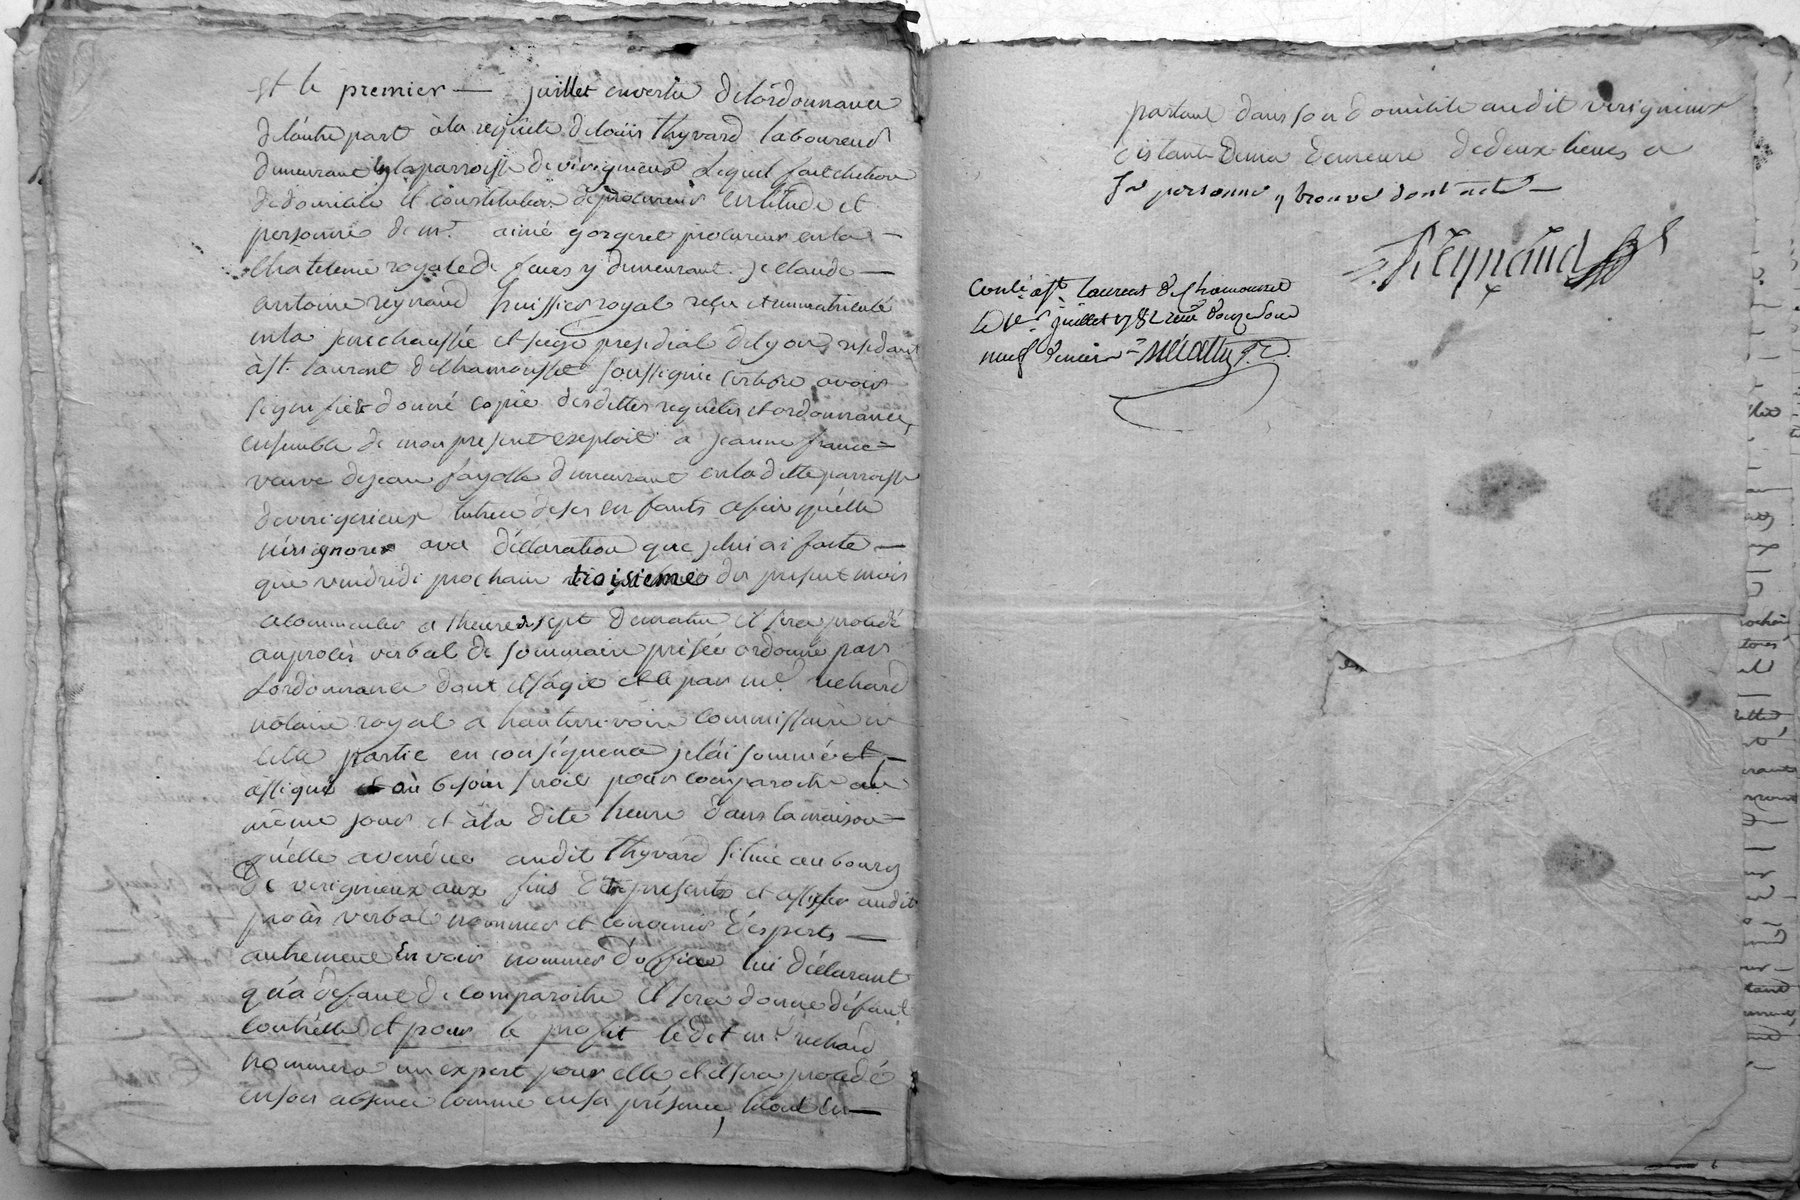 Et le premier — juillet en vertu de lordonnance
de lautre part à la requête de loüis Thyvard laboureur
demeurant en la parroisse de virignieux lequel fait election
de domicile et constitution de procureur en letude et
personne de mr. aimé gorgeret procureur en la —
Chatelenie royale de feurs y demeurant. je claude —
antoine reynaud huissier royal reçu et immatriculé
en la senechaussée et siege presidial de lyon, residant
à st. laurent de Chamousset soussigné certifie avoir
signifié et donné copie desdittes requêtes et ordonnance,
ensemble de mon present exploit a jeanne france =
veuve de jean fayolle demeurant en la ditte parroisse
de virignieux tutrice de ses enfants afin quélle
nén ignore avec déclaration que je lui ai faite —
que vendredi prochain troisieme du present mois
a lheure de sept du matin il sera procedé
au procès verbal de sommaire prisée ordonné par
Lordonnance dont il sagit et ce par me. richard
notaire royal a hauterivoire commissaire en
cette partie en conséquence je lai sommée et —
assigné et où besoin seroit pour comparoitre au
même jour et à la dite heure dans la maison —
quélle a vendue audit Thyvard située au bourg
de virignieux aux fins dêtre presente et assister audit
procès verbal nommer et convenir déxperts —
autrement en voir nommer dóffice lui déclarant
quà défaut de comparoitre il sera donné défaut
contrélle et pour le profit ledit me. richard
nommera un expert pour elle et il sera procedé
en son absence comme en sa présence, le tout en —
parlant dans son domicile audit virignieux
distant de ma demeure de deux lieues a
sa personne y trouvé dont acte —
Reynaud
Conlé. à st. laurent de Chamousset
le 1er. juillet 1782 reçu
neuf deniers =